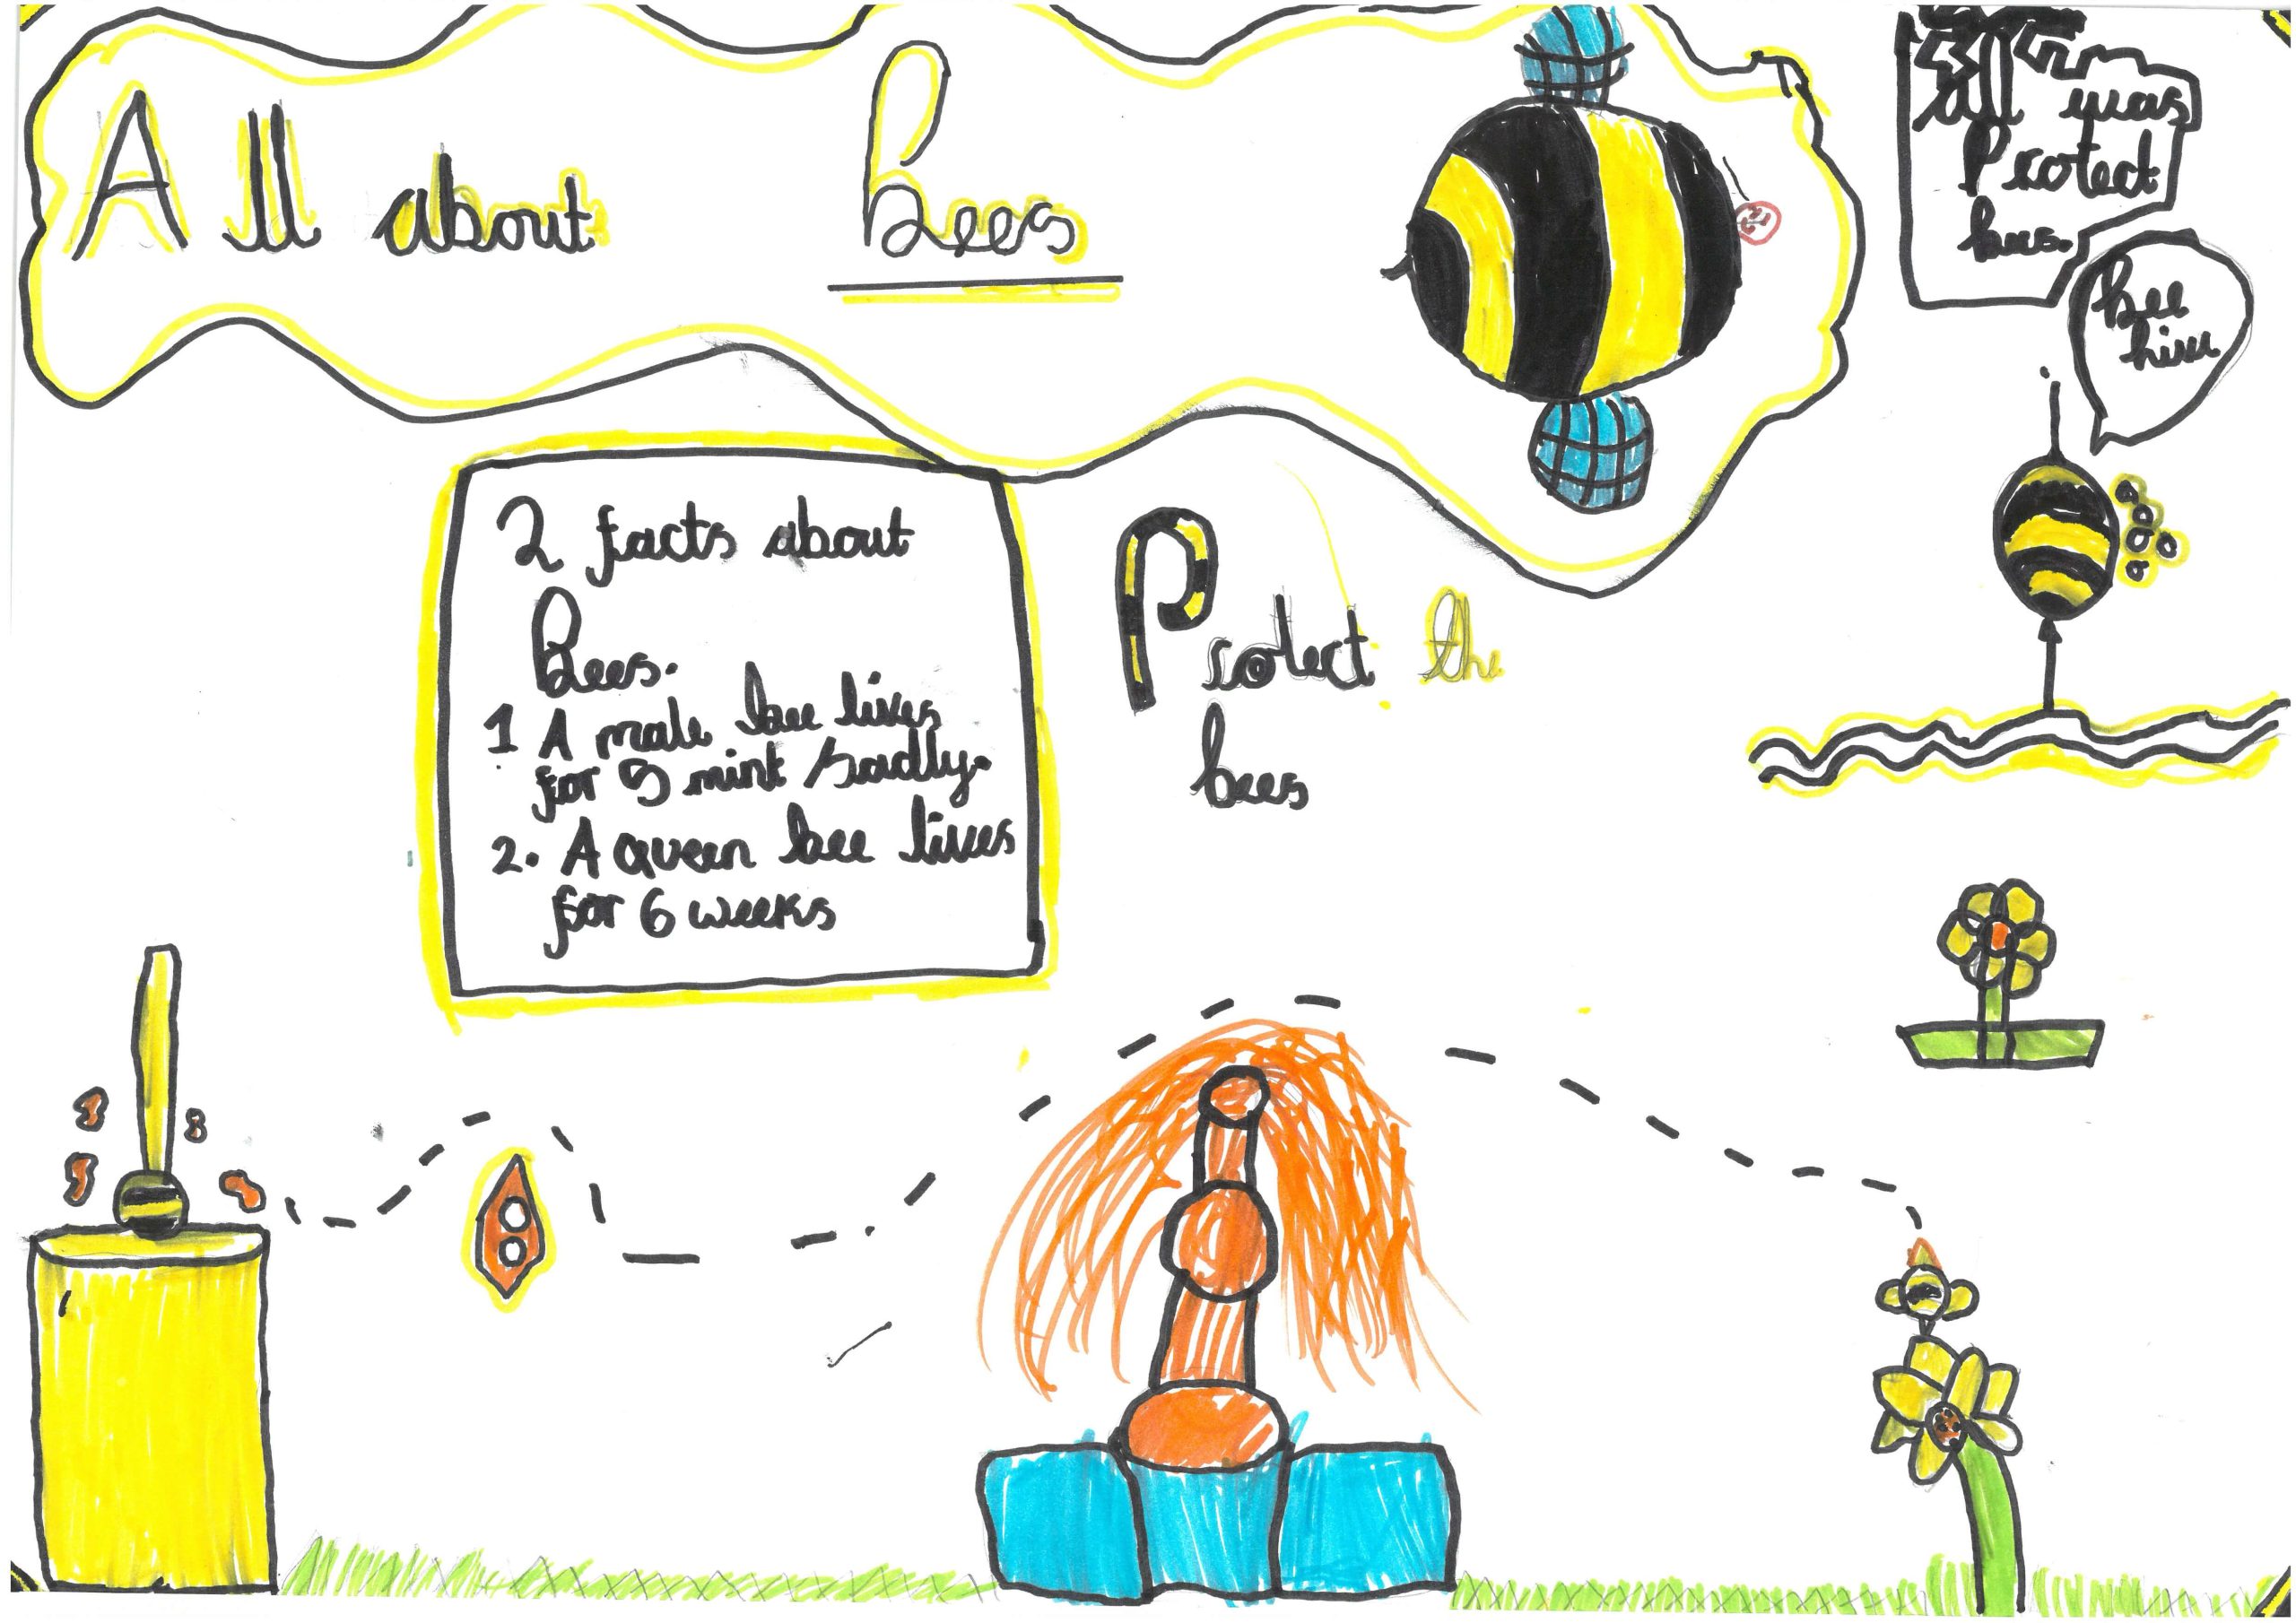 All about Bees
All was
Protect
bees.
bee
hive
2 facts about
Bees.
1 A male bee lives
for 5 mint sadly.
2. A queen bee lives
for 6 weeks
Protect the
bees